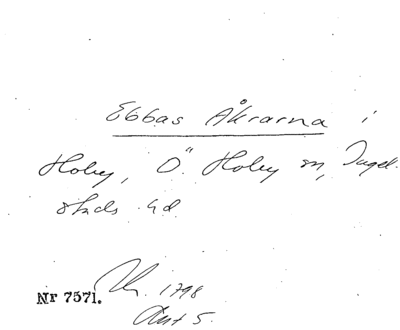 Ebbas Åkrarna i
Hoby, Ö. Hoby sn, Ingel-
stads hd
Nr 7571. 1798
Akt 5.